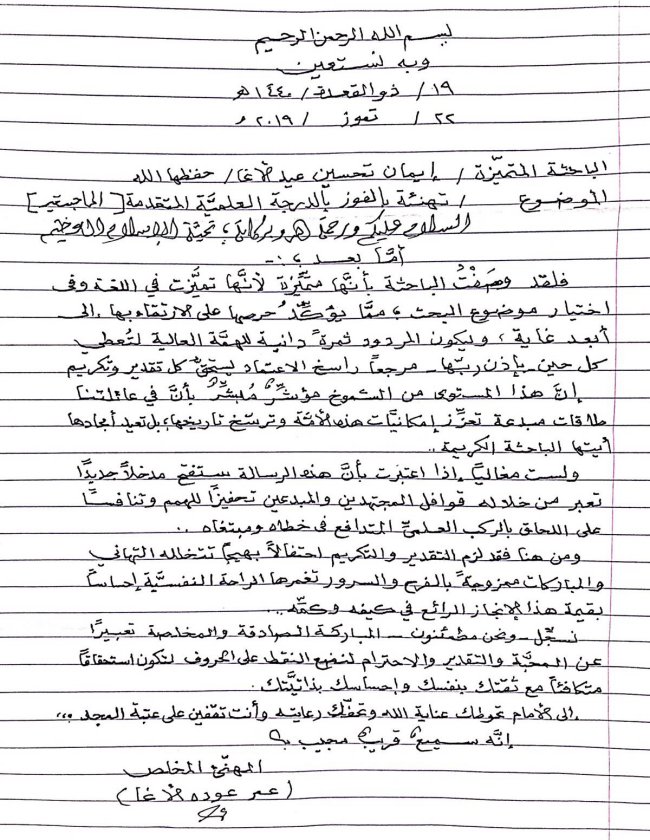 بسم الله الرحمن الرحيم
وبه نستعين
١٩/ ذو القعدة / ١٤٤٠ هـ
٢٢/ تموز / ٢٠١٩ م
الباحثة المتميّزة / إيمان تحسين عيد الأغا / حفظها الله
الموضوع / تهنئة بالفوز بالدرجة العلميّة المتقدمة [الماجستير]
السلام عليكم ورحمة الله وبركاته، تحيّة الإسلام
أمّا بعد؛ -:
فلقد وصَفْتُ الباحثة بأنّها متميّزة لأنّها تميّزت في اللغة وفى
اختيار موضوع البحث، ممّا يؤكّدُ حرصها على الارتقاء بها إلى
أبعد غاية، ويكون المردود ثمرةً دانية للهمّة العالية لتُعطي
كل حين - بإذن ربّها - مرجعاً راسخ الاعتماد يستحقُّ كل تقدير وتكريم
إنَّ هذا المستوى من الشموخ مؤشّرٌ مُبشّرٌ بأنَّ في عائلتنا
طاقات مبدعة تعزّز إمكانيَّات هذه الأمّة وترسّخ تاريخها، بل تعيد أمجادها
أيتها الباحثة الكريمة..
ولست مغالياً إذا اعتبرت بأنَّ هذه الرسالة ستفتح مدخلاً جديدًا
تعبر من خلاله قوافل المجتهدين والمبدعين تحفيزًا للهمم وتنافسًا
على اللحاق بالركب العلميّ المتدافع في خطاه ومبتغاه ..
ومن هنا فقد لزم التقدير والتكريم احتفالاً بهيجًا تتخلله التهاني
والمباركات ممزوجةً بالفرح والسرور تغمرها الراحة النفسيَّة إحساساً
بقيمة هذا الإنجاز الرائع في كيفه وكمّه...
نسجّل - ونحن مطمئنون - المباركة الصادقة والمخلصة تعبيرًا
عن المحبَّة والتقدير والاحترام لنضع النقط على الحروف لتكون استحقاقاً
متكافئاً مع ثقتك بنفسك وإحساسك بذاتيَّتك.
إلى الأمام تحوطك عناية الله وتحفّك رعايته وأنت تقفين على عتبة المجد ...
إنّه سميعٌ قريبٌ مجيب
المهنّئ المخلص
(عمر عوده الأغا)